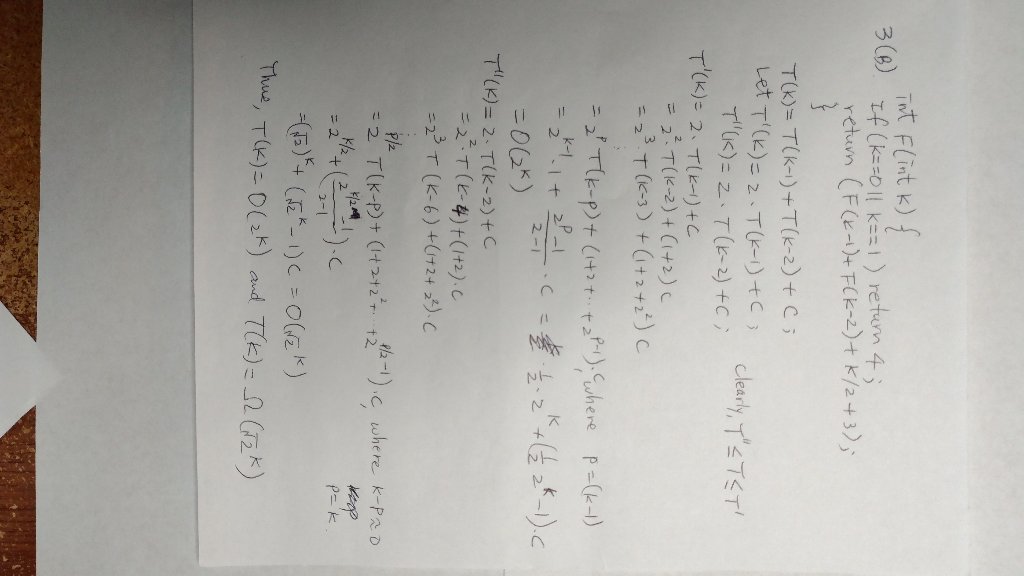 int F(int k) {
3(B). If (k==0 || k==1) return 4;
return (F(k-1)+F(k-2)+k/2+3);
}
T(k)=T(k-1)+T(k-2)+C;
Let T'(k)=2·T(k-1)+C;
T''(k)=2·T(k-2)+C; Clearly, T''≤T≤T'
T'(k)=2·T(k-1)+C
=2²·T(k-2)+(1+2)C
=2³·T(k-3)+(1+2+2²)C
⋮
=2^p T(k-p)+(1+2+..+2^{p-1})·C, where p=(k-1)
=2^{k-1}·1+\frac{2^p-1}{2-1}·C = ·\frac{1}{2}·2^k+(\frac{1}{2}2^k-1)·C
=O(2^k)
T''(k)=2·T(k-2)+C
=2²·T(k-4)+(1+2)·C
=2³T(k-6)+(1+2+2²)·C
⋮
=2^{p/2} T(k-p)+(1+2+2²+...+2^{p/2-1})·C, where k-p≈0
p=k.
=2^{k/2}+(\frac{2^{k/2}-1}{2-1})·C
=(√2)^k+(√2^k-1)C=O(√2^k)
Thus, T(k)=O(2^k) and T(k)=Ω(√2^k)